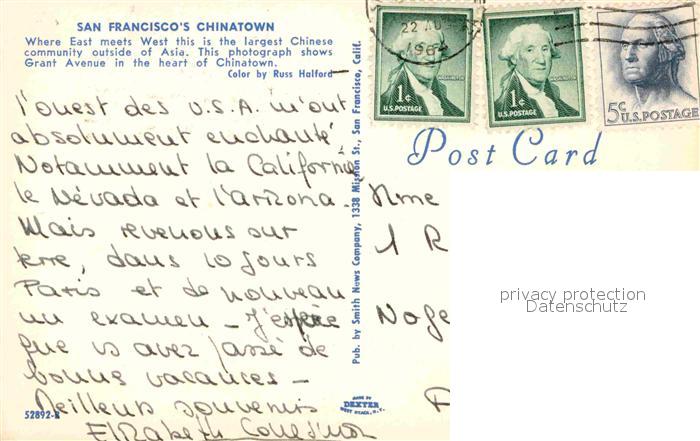 SAN FRANCISCO'S CHINATOWN
Where East meets West this is the largest Chinese
community outside of Asia. This photograph shows
Grant Avenue in the heart of Chinatown.
Color by Russ Halford
l'ouest des U.S.A. m'ont
absolument enchanté
Notamment la Californie
le Névada et l'arizona.
Mais revenons sur
terre, dans 10 jours
Paris et de nouveau
un examen - J'espère
que vs avez passé de
bonne vacances -
Meilleurs souvenirs
Elizabeth
52892-B
Pub. by Smith News Company, 1338 Mission St., San Francisco, Calif.
MADE BY
DEXTER
WEST NYACK, N.Y.
22 AU
1964
1¢
U.S. POSTAGE
WASHINGTON
1¢
U.S. POSTAGE
WASHINGTON
5c
U.S. POSTAGE
Post Card
Mme
1 R
Noge
privacy protection
Datenschutz